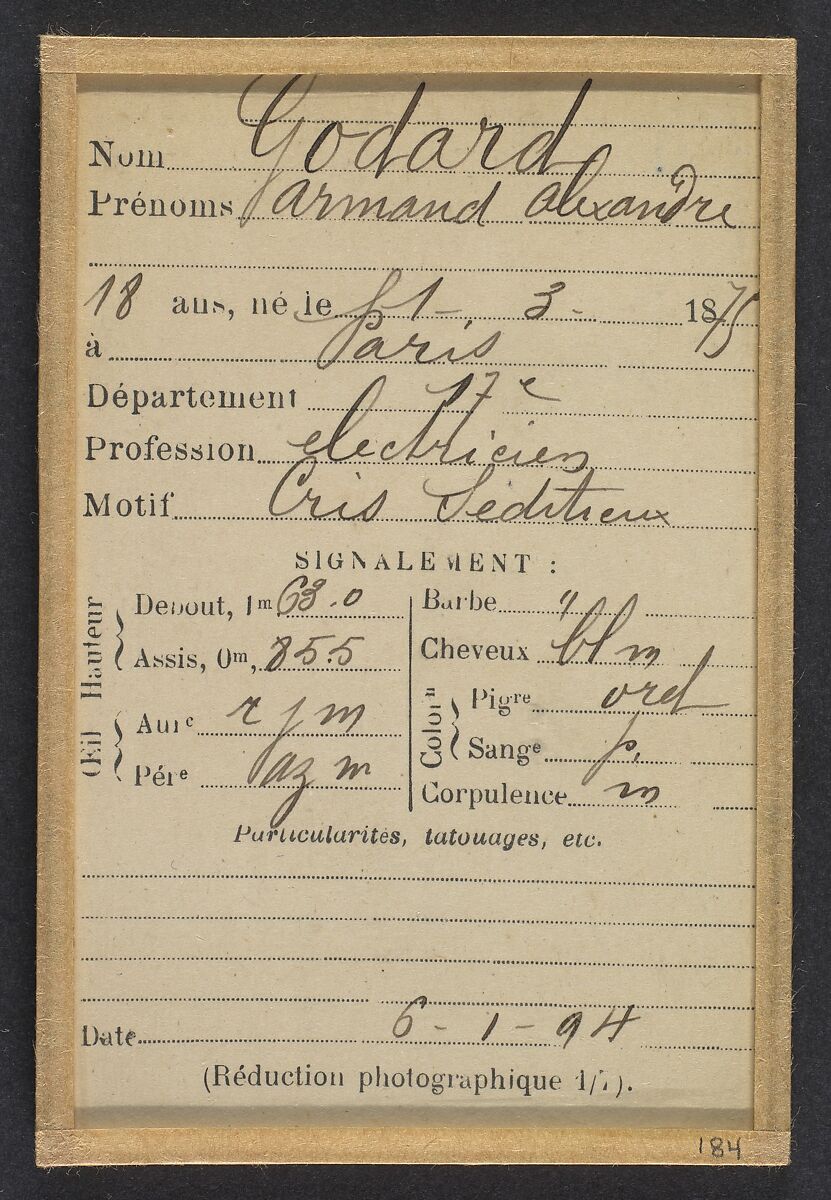 Nom Godard
Prénoms armand alexandre
18 ans, né le 1 - 3 - 1875
à Paris
Département 17e
Profession electricien
Motif Cris Séditieux
SIGNALEMENT :
Hauteur
Debout, 1m 63.0
Assis, 0m, 85.5
Œil
Aure r j m
Pére az m
Barbe "
Cheveux bl m
Colorn
Pigre ord
Sange p.
Corpulence m
Particularités, tatouages, etc.
Date 6 - 1 - 94
(Réduction photographique 1/7).
184